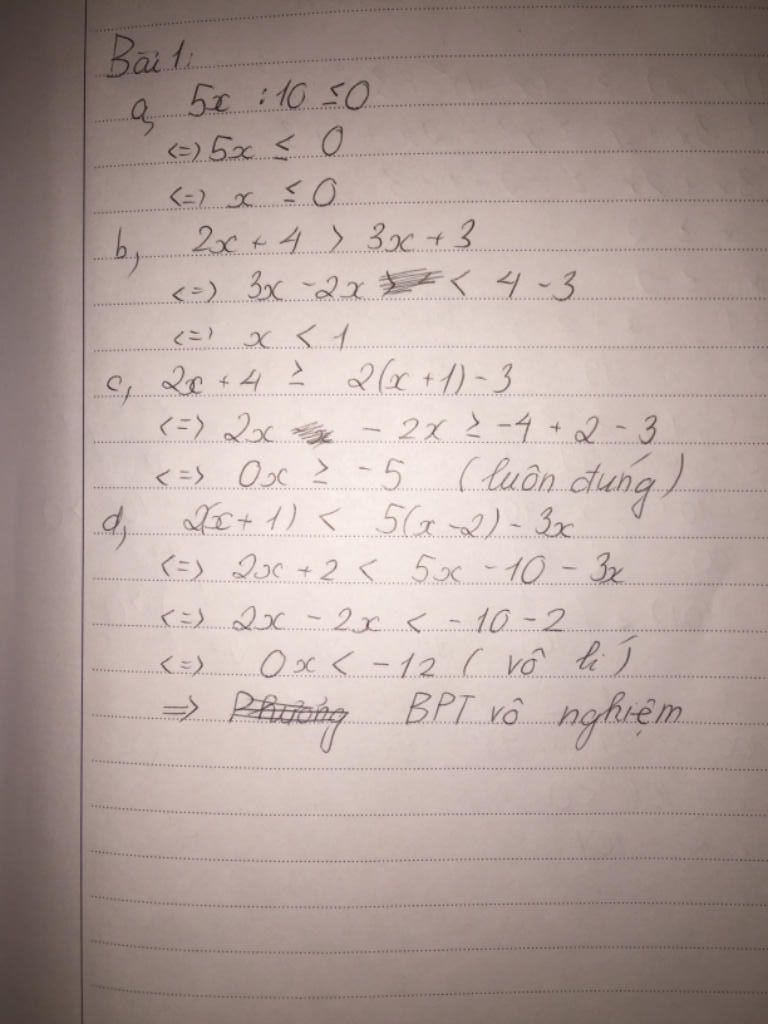 Bài 1:
a, 5x : 10 ≤ 0
<=> 5x ≤ 0
<=> x ≤ 0
b, 2x + 4 > 3x + 3
<=> 3x - 2x < 4 - 3
<=> x < 1
c, 2x + 4 ≥ 2(x + 1) - 3
<=> 2x - 2x ≥ -4 + 2 - 3
<=> 0x ≥ -5 (luôn đúng)
d, 2(x + 1) < 5(x - 2) - 3x
<=> 2x + 2 < 5x - 10 - 3x
<=> 2x - 2x < -10 - 2
<=> 0x < -12 (vô lí)
=> Phương BPT vô nghiệm